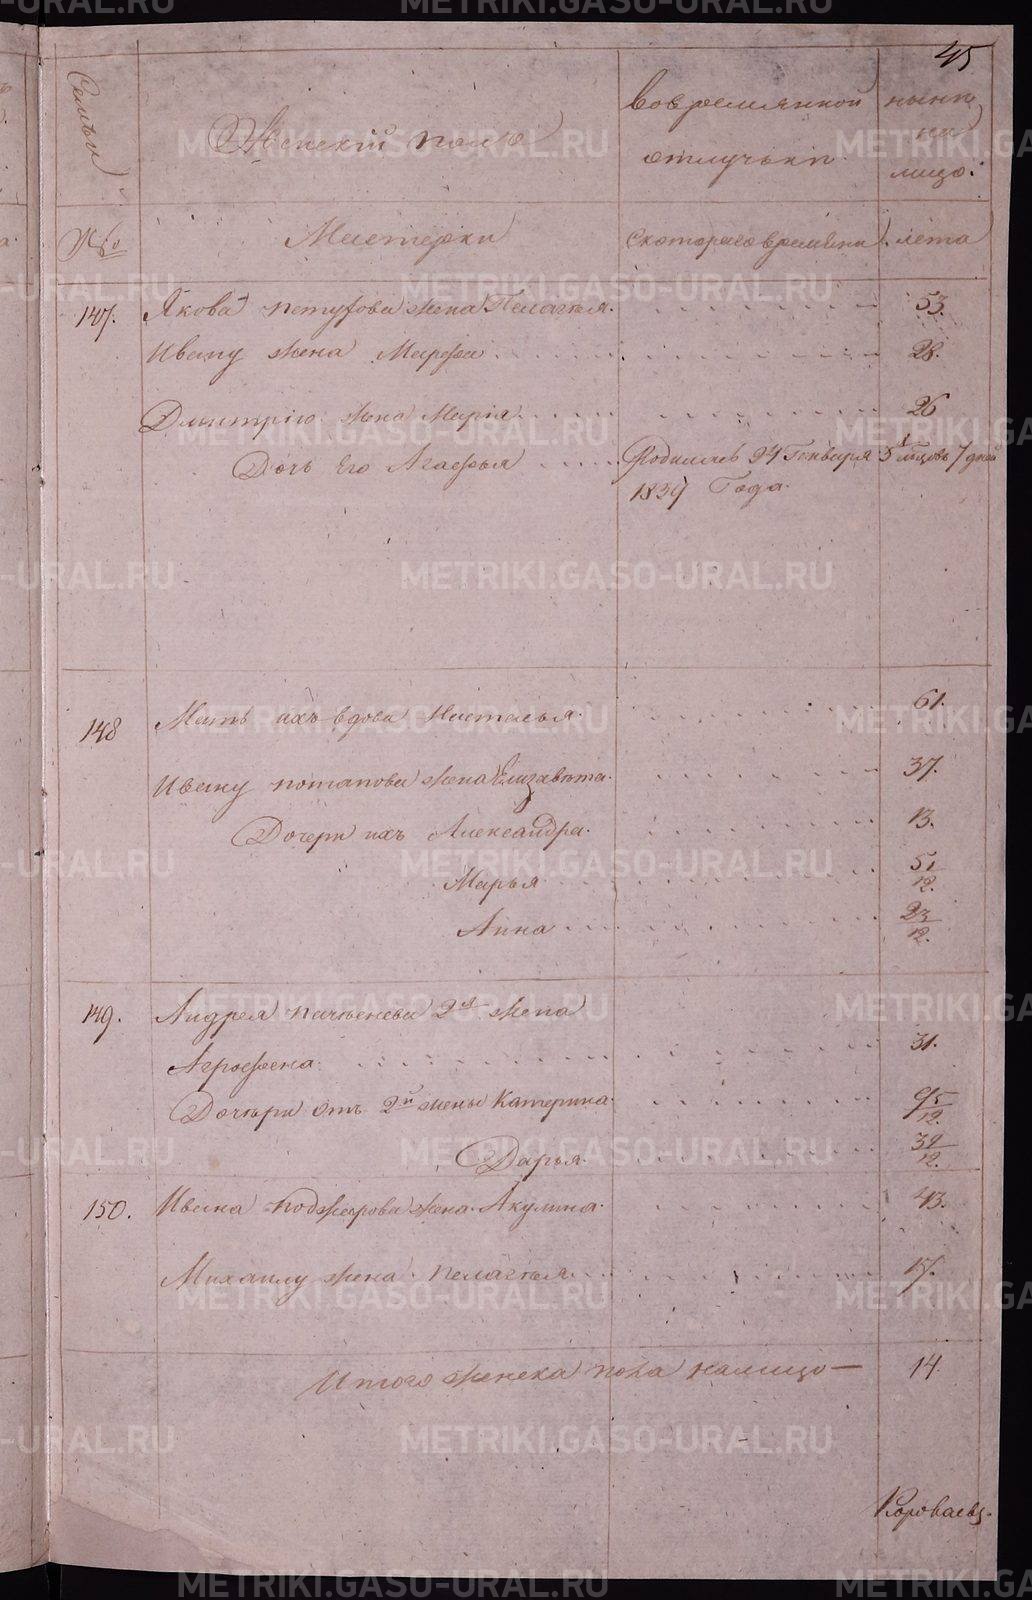 45
Семьи
Женскій полъ
Во временной отлучьки
нынѣ на лицо.
№
Мастерки
Скотораго времяни
лета
147.
Якова Петухова жена Пелагѣя.
53.
Ивану жена Марфа
28.
Дмитрію жена Марія
26
Дочь Его Агафья
Родилась 24 Генваря 1839 Года.
5 мцовъ 7 дней
148
Мать ихъ вдова Наталья.
61.
Ивану Потапова жена Елизавѣта.
37.
Дочери ихъ Александра.
13.
Марья
5 1/12.
Анна
2 3/12.
149.
Андрея Пачтенева 2я жена
Агрофена
31.
Дочѣри отъ 2й жены Катерина.
9 5/12.
Дарья.
3 2/12.
150.
Ивана Поджарова жена Акулина.
43.
Михаилу жена Пелагѣя
17.
Итого женска пола налицо —
14.
Короваевъ.
METRIKI.GASO-URAL.RU